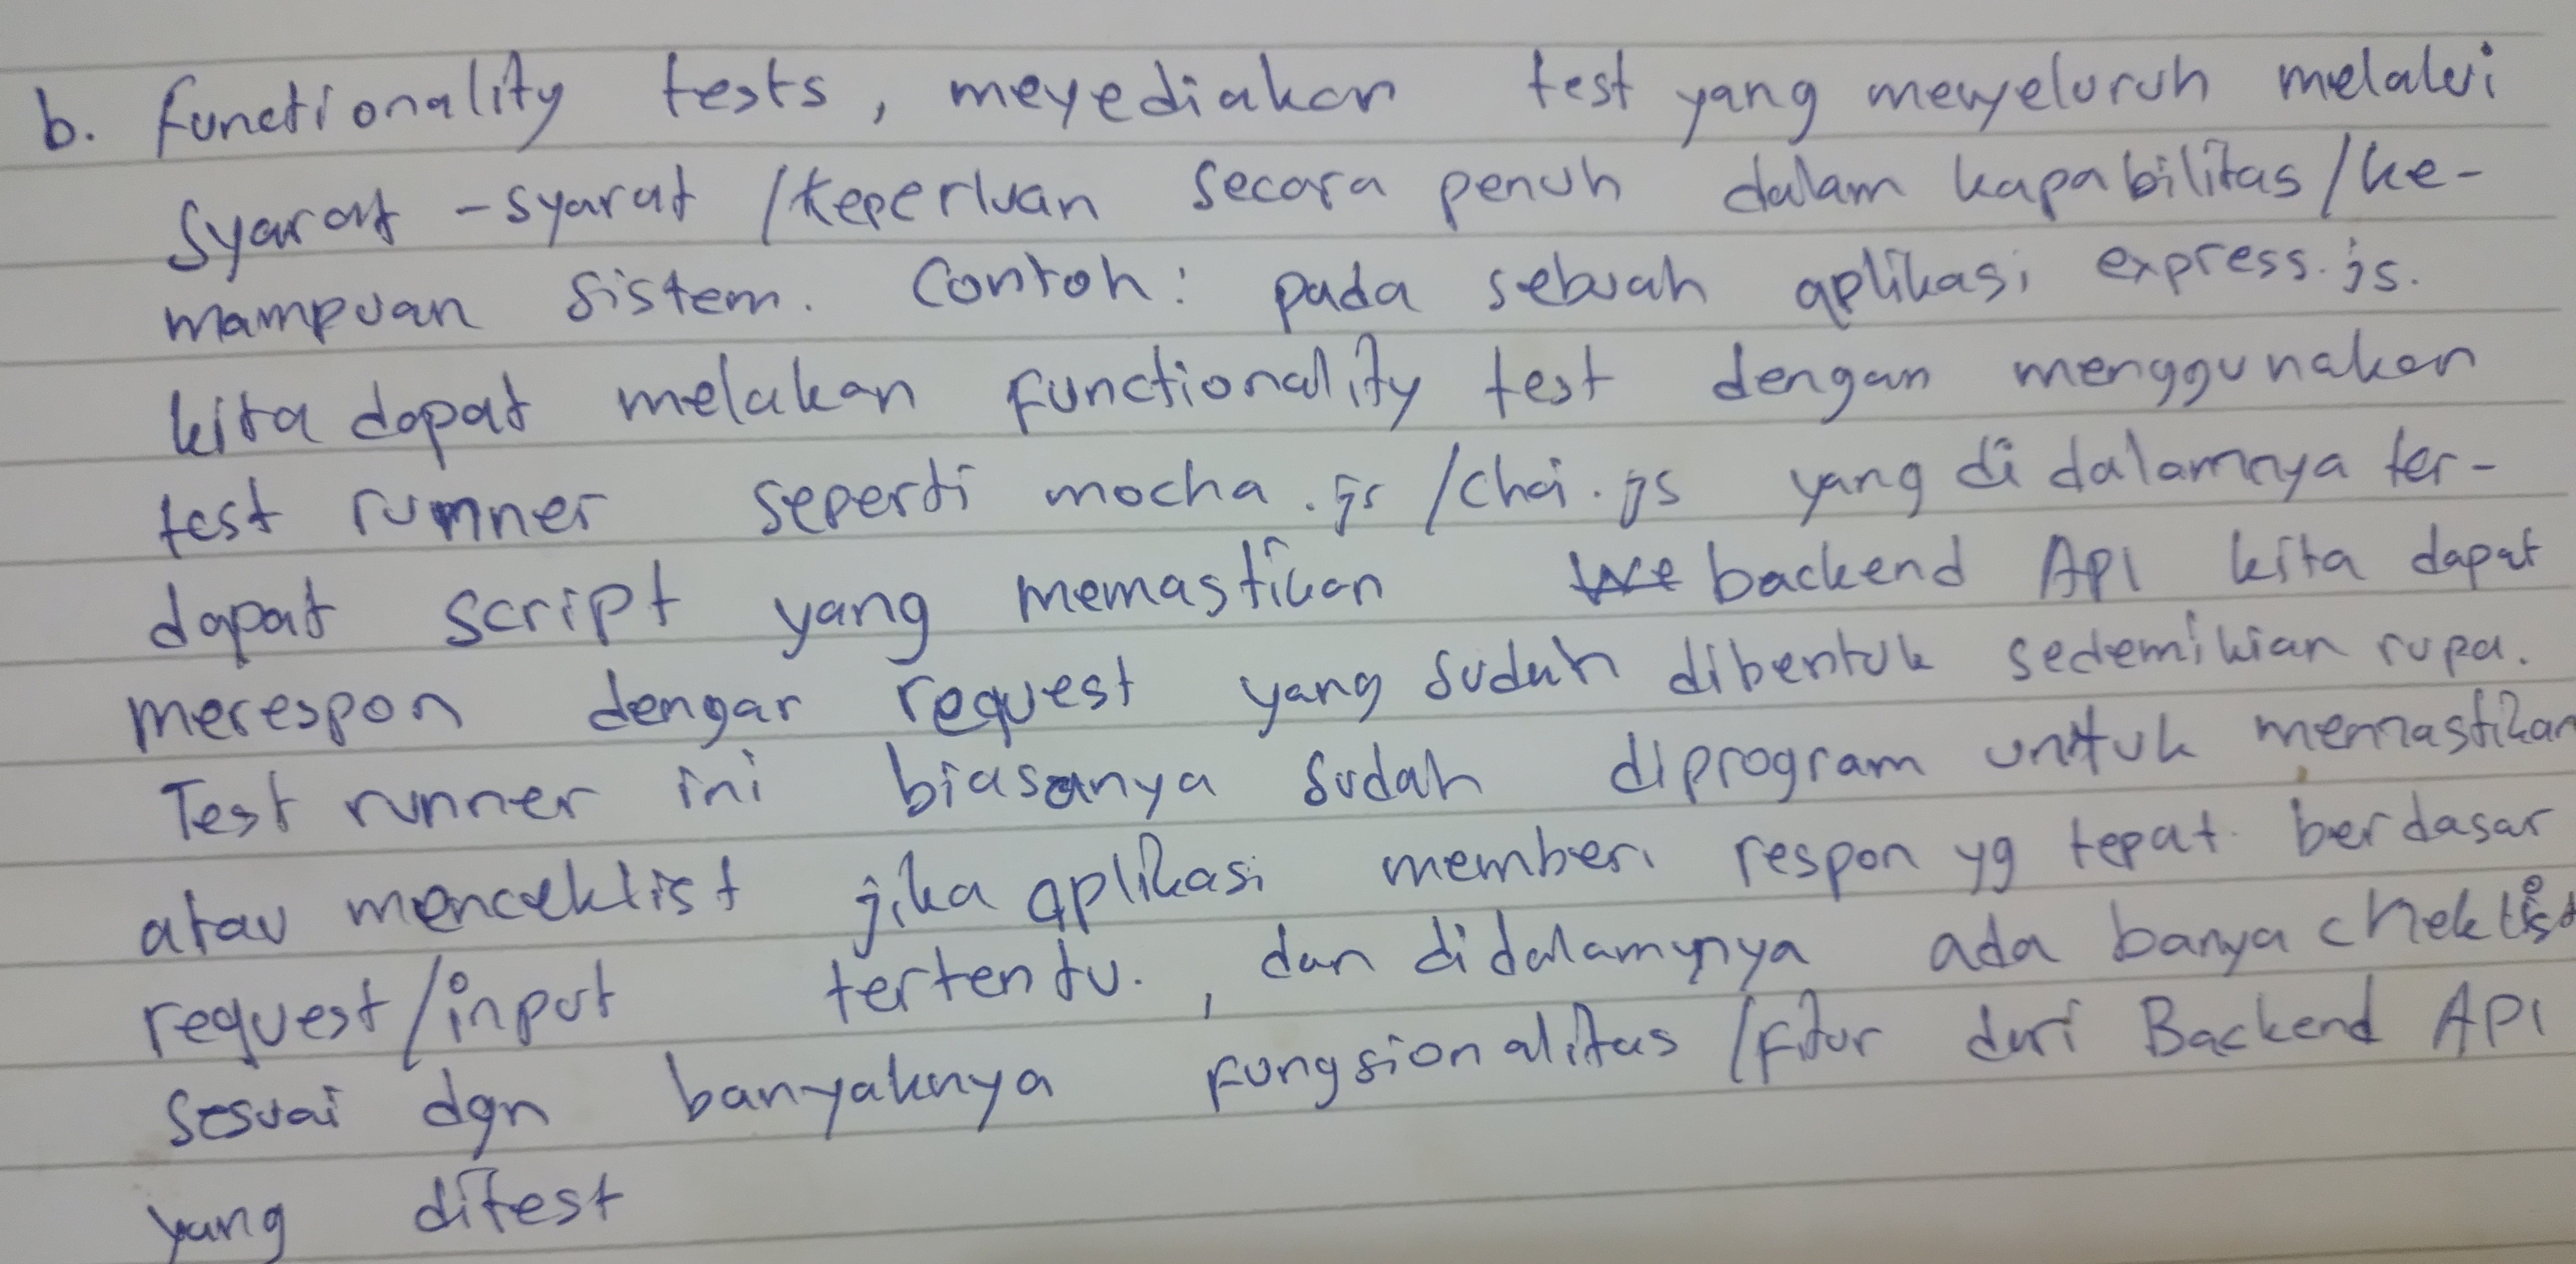 b. Functionality tests, meyediakan test yang menyeluruh melalui
Syarat-syarat /keperluan secara penuh dalam kapabilitas/ke-
mampuan sistem. Contoh: pada sebuah aplikasi express.js.
kita dapat melakan functionality test dengan menggunakan
test runner seperti mocha.js /chai.js yang di dalamnya ter-
dapat script yang memastikan backend API kita dapat
merespon dengar request yang sudah dibentuk sedemikian rupa.
Test runner ini biasanya sudah diprogram untuk memastikan
atau menceklist jika aplikasi memberi respon yg tepat berdasar
request/input tertentu. , dan didalamynya ada banya cheklist
sesuai dgn banyaknya fungsionalitas /fitur dari Backend API
yang ditest